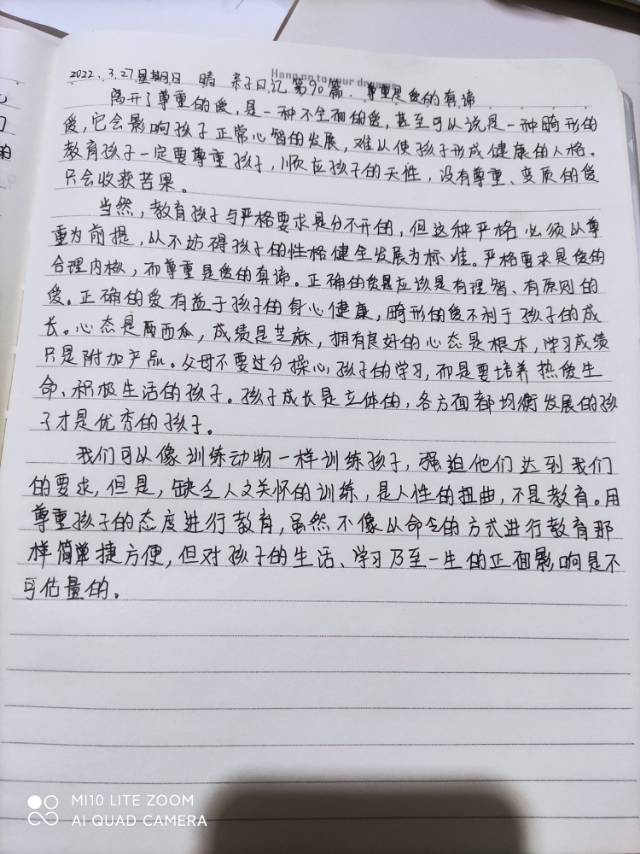 2022.3.27 星期日 晴 亲子日记 第90篇 尊重是爱的真谛
离开了尊重的爱,是一种不全面的爱,甚至可以说是一种畸形的
爱,它会影响孩子正常心智的发展,难从使孩子形成健康的人格。
教育孩子一定要尊重孩子,顺应孩子的天性,没有尊重、变质的爱
只会收获苦果。
当然,教育孩子与严格要求是分不开的,但这种严格必须从尊
重为前提,从不妨碍孩子的性格健全发展为标准。严格要求是爱的
合理内核,而尊重是爱的真谛。正确的爱是应该是有理智、有原则的
爱。正确的爱有益于孩子的身心健康,畸形的爱不利于孩子的成
长。心态是西瓜,成绩是芝麻,拥有良好的心态是根本,学习成绩
只是附加产品。父母不要过分操心孩子的学习,而是要培养热爱生
命、积极生活的孩子。孩子成长是立体的,各方面都均衡发展的孩
子才是优秀的孩子。
我们可以像训练动物一样训练孩子,强迫他们达到我们
的要求,但是,缺乏人文关怀的训练,是人性的扭曲,不是教育。用
尊重孩子的态度进行教育,虽然不像从命令的方式进行教育那
样简单捷方便,但对孩子的生活、学习乃至一生的正面影响是不
可估量的。
MI10 LITE ZOOM
AI QUAD CAMERA